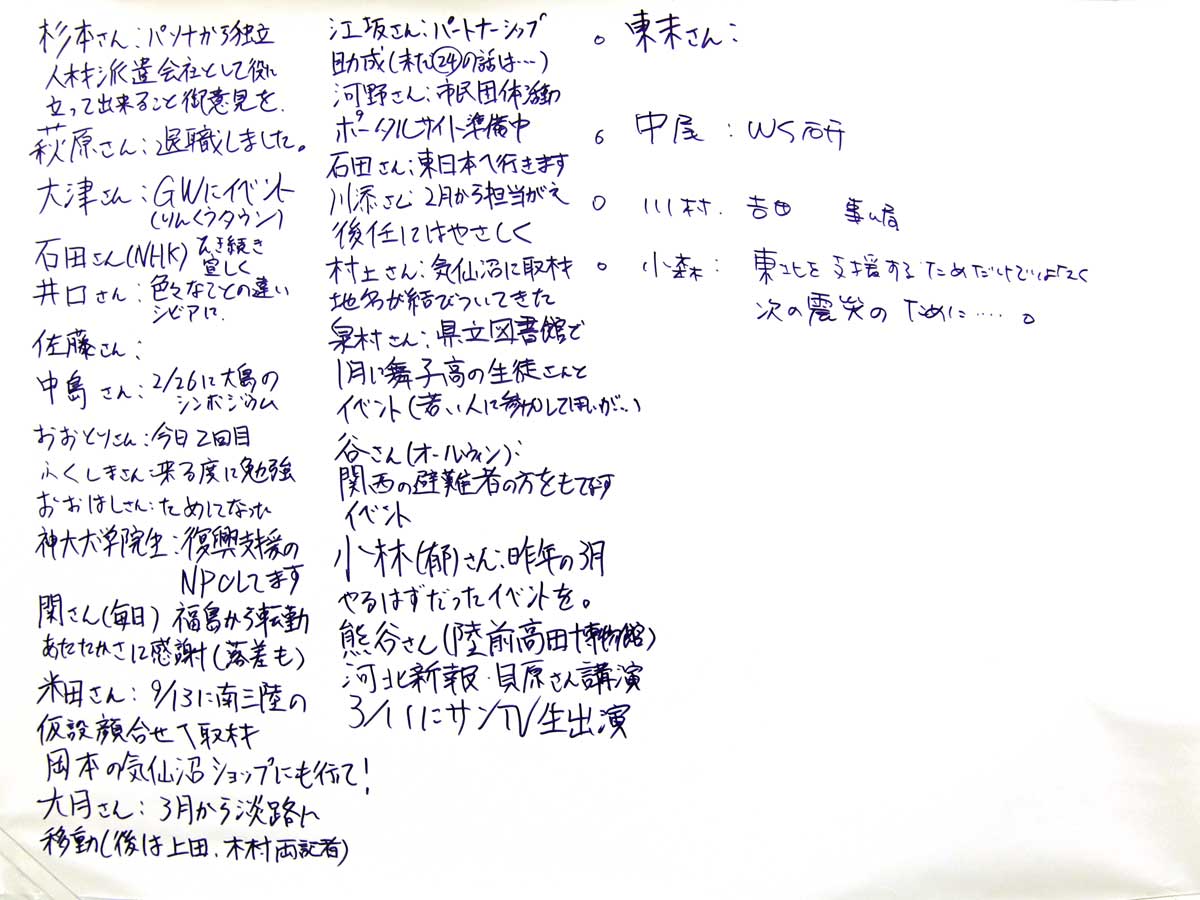 杉本さん：パソナから独立
人材派遣会社として役に
立って出来ること御意見を.
萩原さん：退職しました。
大津さん：GWにイベント
(りんくうタウン)
石田さん(NHK) 引き続き
宜しく
井口さん：色々なことの違い
シビアに.
佐藤さん：
中島さん：2/26に大島の
シンポジウム
おおとりさん：今日2回目
ふくしまさん：来る度に勉強
おおはしさん：ためになった
神大大学院生：復興支援の
NPOしてます
関さん(毎日) 福島から転勤
あたたかさに感謝(落差も)
米田さん：9/13に南三陸の
仮設顔合せへ取材
岡本の気仙沼ショップにも行て!
大月さん：3月から淡路に
移動(後は上田.木村両記者)
江坂さん：パートナーシップ
助成(まだ㉔の話は…)
河野さん：市民団体活動
ポータルサイト準備中
石田さん：東日本へ行きます
川添さん：2月から担当がえ
後任にはやさしく
村上さん：気仙沼に取材
地名が結びついてきた
泉村さん：県立図書館で
1月に舞子高の生徒さんと
イベント(若い人に参加して用いが…)
谷さん(オールウィン)：
関西の避難者の方をもてなす
イベント
小林(郁)さん：昨年の3月
やるはずだったイベントを。
熊谷さん(陸前高田博物館)
河北新報・貝原さん講演
3/11にサンTV生出演
○ 東末さん：
○ 中尾：WS研
○ 川村. 吉田 事ム局
○ 小森：東北を支援するためだけでなく
次の震災のために……。